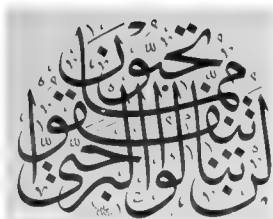 لن تنالوا البر حتى
تنفقوا
مما
تحبون